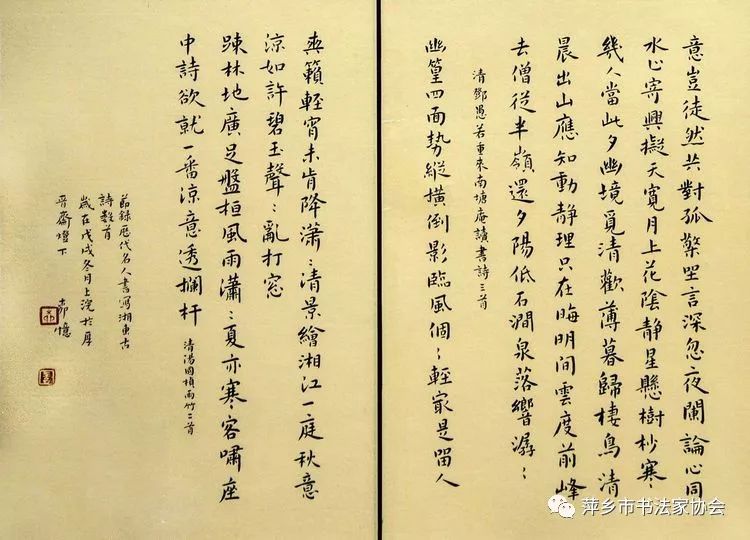 意豈徒然共對孤檠坐言深忽夜闌論心同
水止寄興擬天寬月上花陰靜星懸樹杪寒
幾人當此夕幽境覓清歡薄暮歸棲鳥清
晨出山應知動靜理只在晦明間雲度前峰
去僧從半嶺還夕陽低石澗泉落響潺〻
清鄧愚若重來南塘庵讀書詩三首
幽篁四面勢縱橫倒影臨風個〻輕最是留人
爽籟輕宵未肯降瀟〻清景繪湘江一庭秋意
涼如許碧玉聲〻亂打窓
踈林地廣足盤桓風雨瀟〻夏亦寒客嘯座
中詩欲就一番涼意透欄杆
清湯國楨雨竹二首
節錄歷代名人書寫湘東古
詩數首
歲在戊戌冬月上浣於厚
晉齋燈下
萍乡市书法家协会